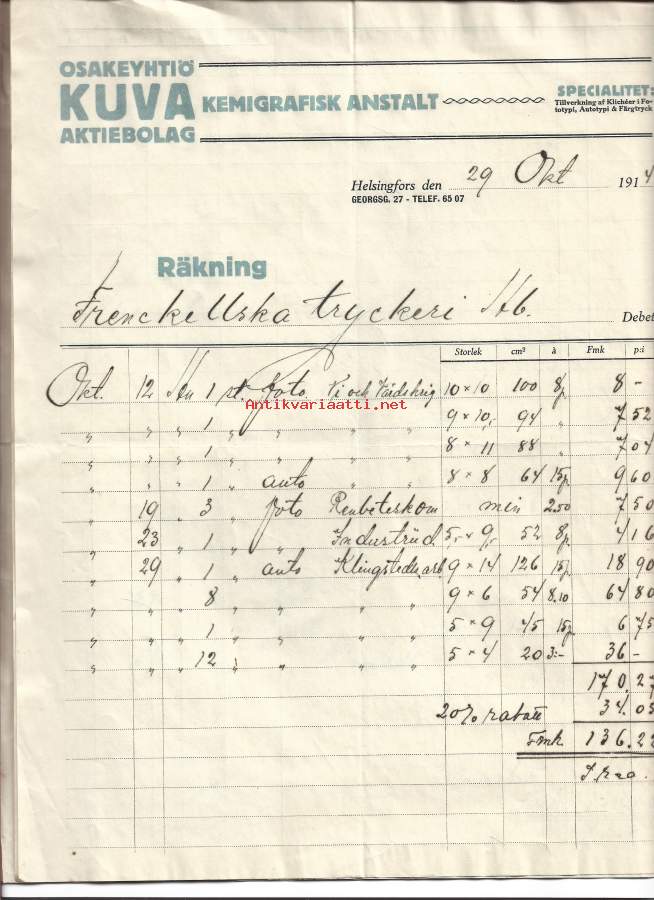 OSAKEYHTIÖ
KUVA KEMIGRAFISK ANSTALT
AKTIEBOLAG
SPECIALITET:
Tillverkning af Klichéer i Fo-
totypi, Autotypi & Färgtryck
Helsingfors den 29 Okt 1914
GEORGSG. 27 - TELEF. 65 07
Räkning
Frenckellska tryckeri Debet
Storlek cm² à Fmk p:i
Okt. 12 1 st. foto Vi och Världskrig 10 × 10 100 8p 8 -
Antikvariaatti.net
" " " 1 " " " " 9 × 10,- 94 " 7 52
" " " 1 " " " " 8 × 11 88 " 7 04
" " " 1 " auto " " 8 × 8 64 15p 9 60
" 19 " 3 " foto min 2.50 7 50
" 23 " 1 " " 5,- × 9,- 52 8p 4 16
" 29 " 1 " auto 9 × 14 126 15p 18 90
" " " 8 " " " " 9 × 6 54 8.10 64 80
" " " 1 " " " " 5 × 9 45 15p 6 75
" " " 12 " " " " 5 × 4 20 3:- 36 -
170.27
20% rabatt 34.05
Fmk 136.22